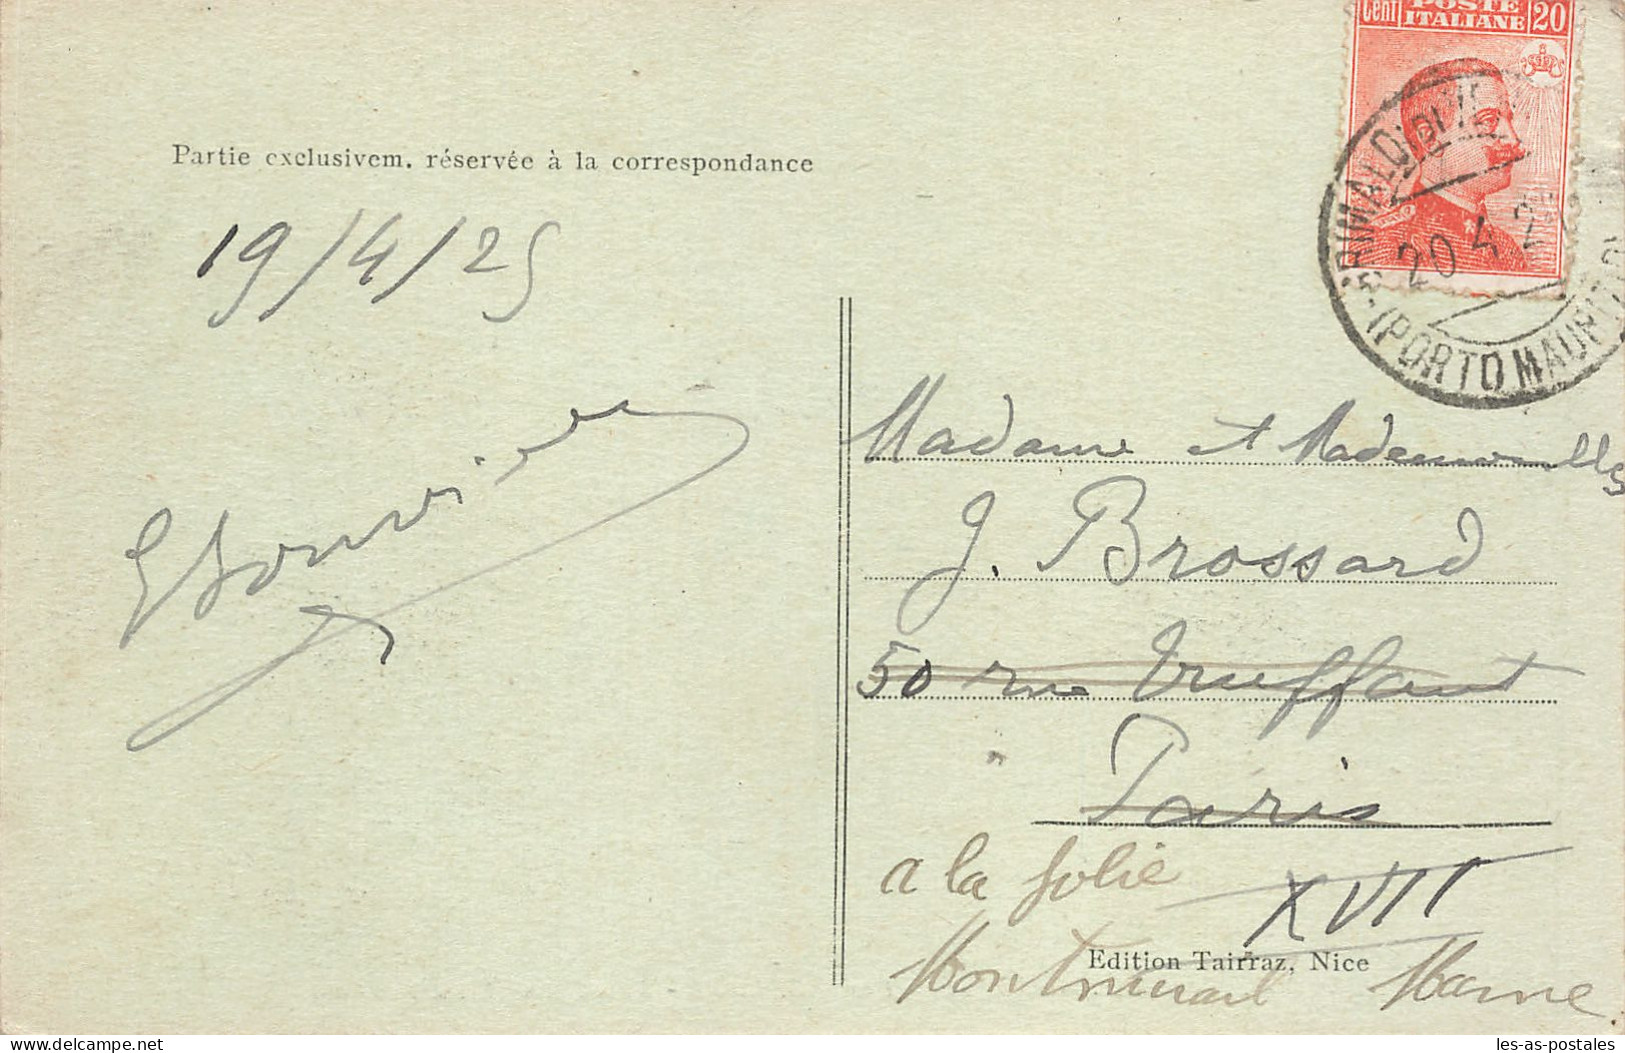 Cent POSTE ITALIANE 20
GRIMALDI DI VEN
20 4 2
(PORTO MAURIZIO
Partie exclusivem. réservée à la correspondance
19/4/25
Madame et Mademoiselle
J. Brossard
50 rue Truffaut
Paris
XVII
a la folie
Montmirail Marne
Edition Tairraz, Nice
les-as-postales